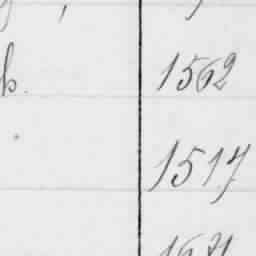 k. 1562
1517